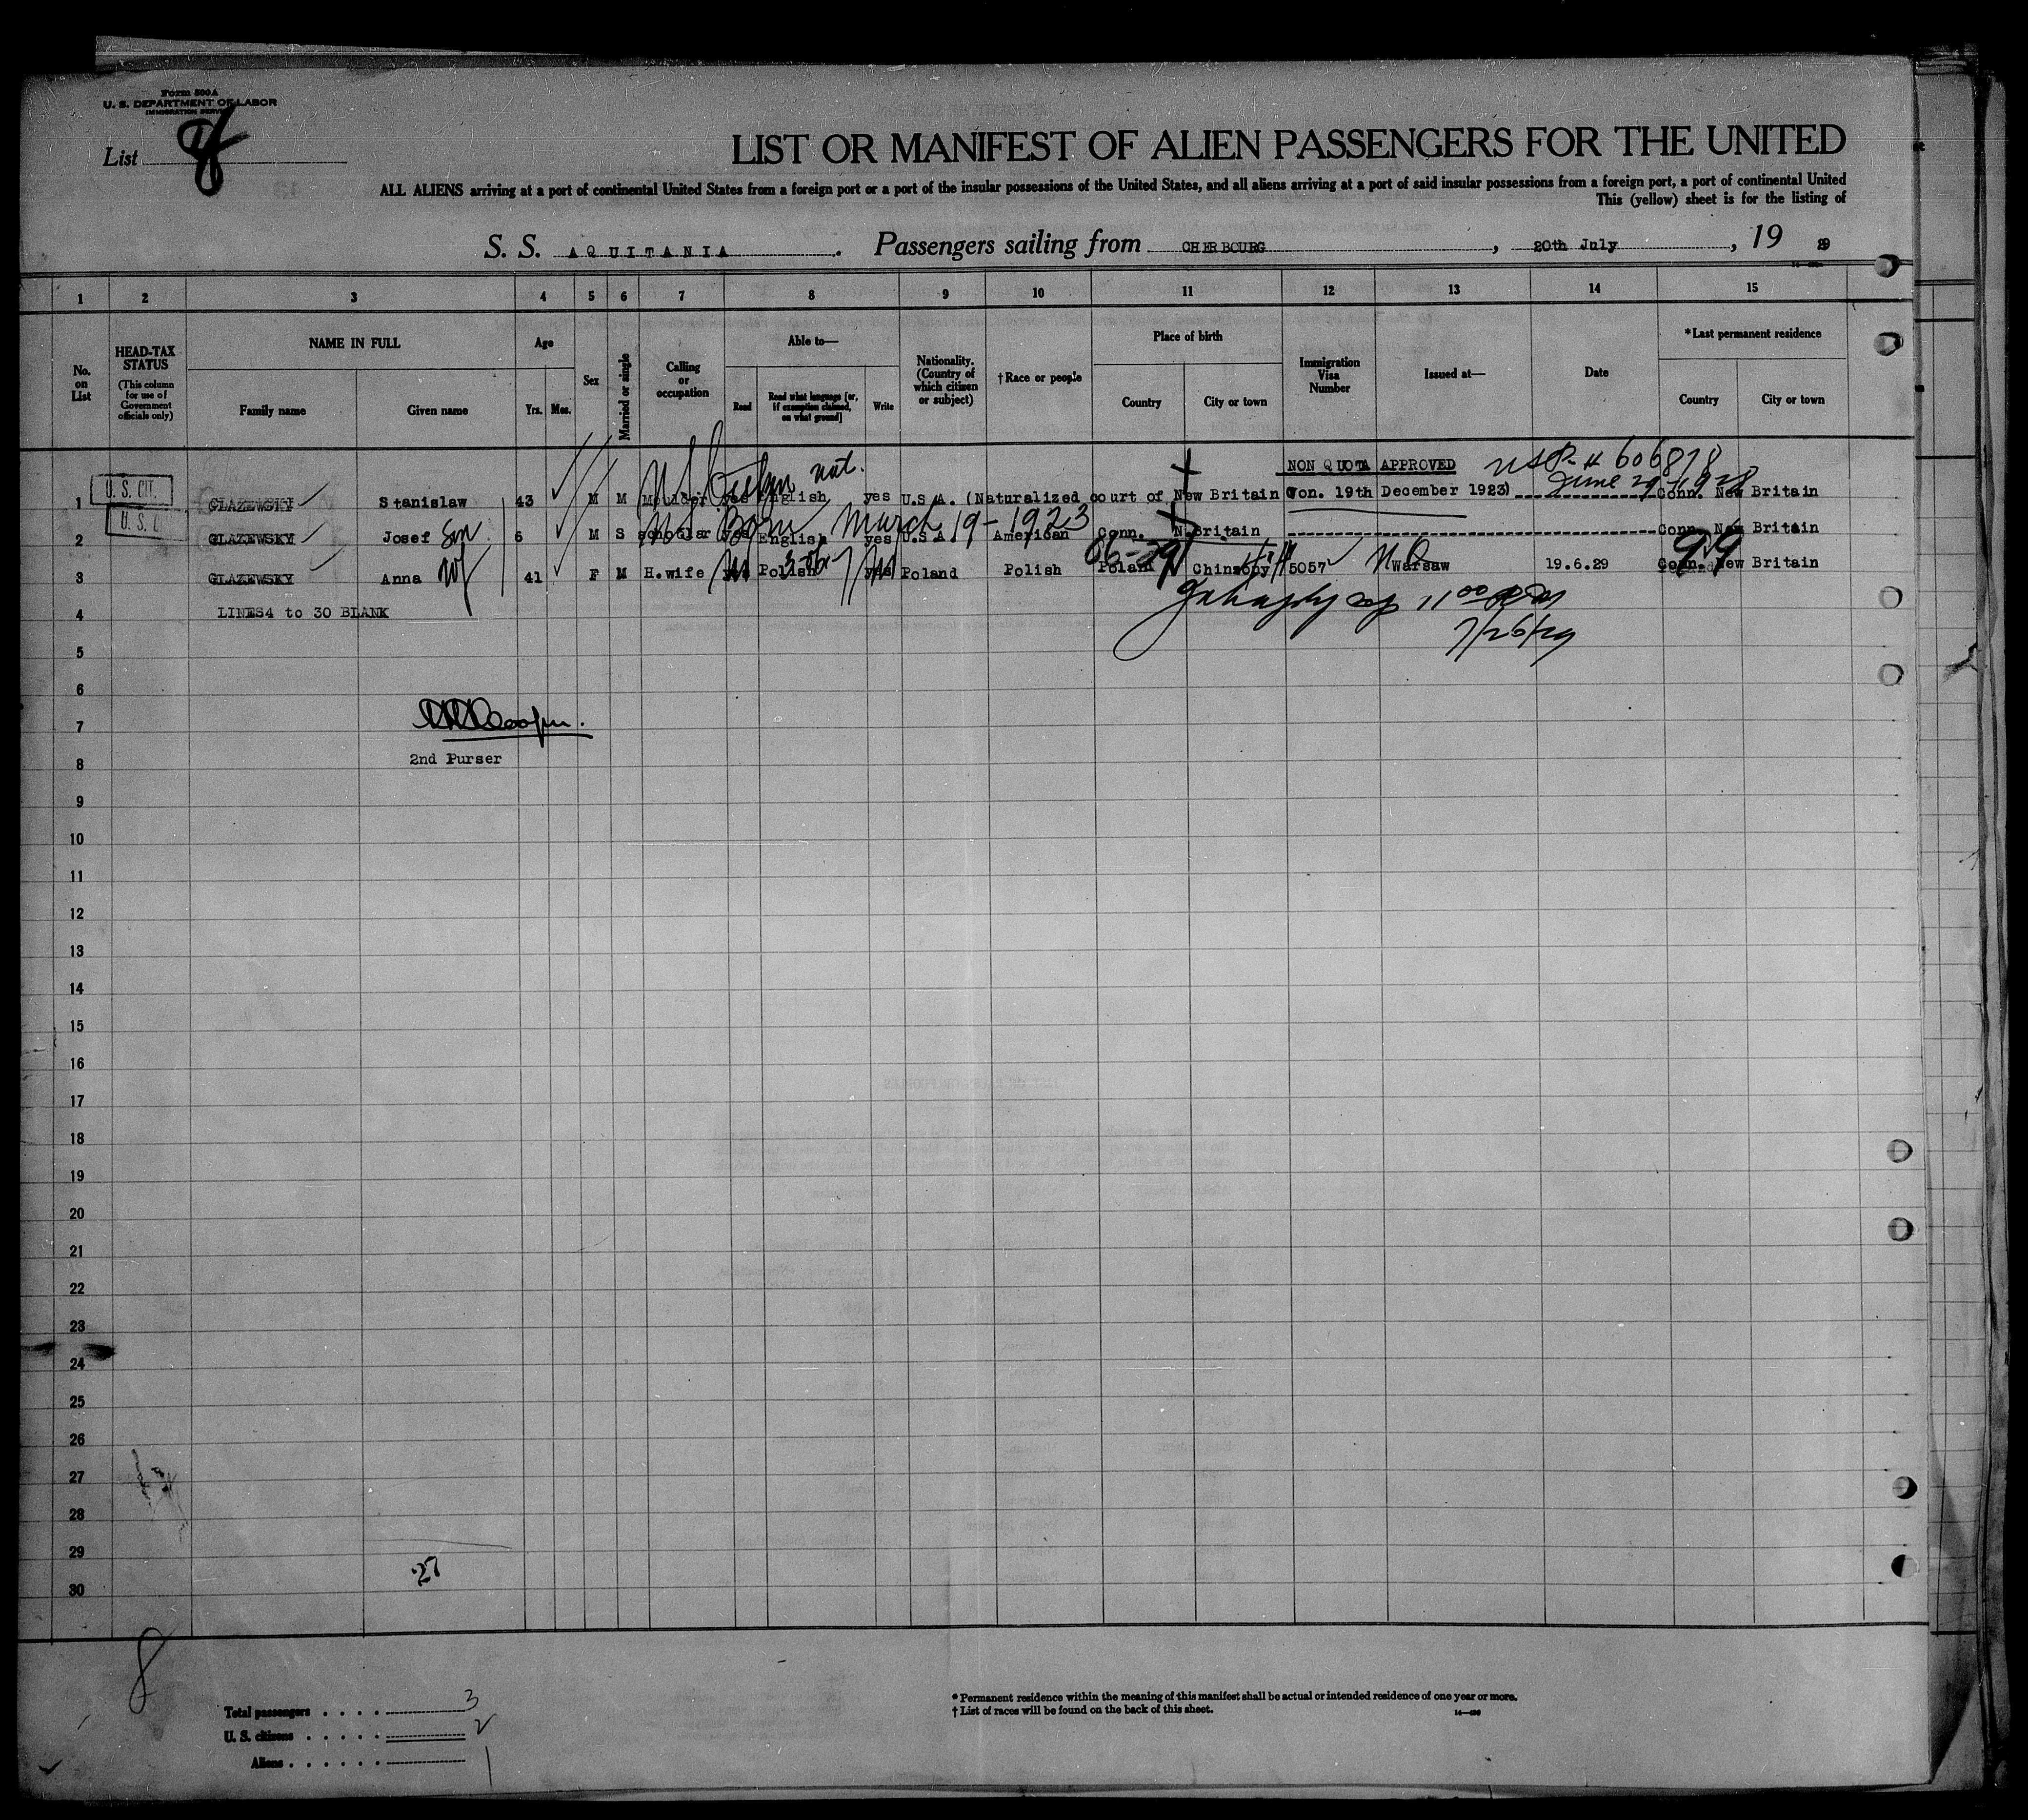 Form 500A
U. S. DEPARTMENT OF LABOR
IMMIGRATION SERVICE
List
LIST OR MANIFEST OF ALIEN PASSENGERS FOR THE UNITED
ALL ALIENS arriving at a port of continental United States from a foreign port or a port of the insular possessions of the United States, and all aliens arriving at a port of said insular possessions from a foreign port, a port of continental United
This (yellow) sheet is for the listing of
S. S. AQUITANIA. Passengers sailing from CHERBOURG, 20th July, 19 29
1 2 3 4 5 6 7 8 9 10 11 12 13 14 15
No. on List
HEAD-TAX STATUS (This column for use of Government officials only)
NAME IN FULL
Family name Given name
Age
Yrs. Mos.
Sex
Married or single
Calling or occupation
Able to—
Read Read what language [or, if exemption claimed, on what ground] Write
Nationality. (Country of which citizen or subject)
†Race or people
Place of birth
Country City or town
Immigration Visa Number
Issued at—
Date
*Last permanent residence
Country City or town
NON QUOTA APPROVED USP # 606878
June 29-1928
U.S. Citizen nat.
1 U. S. CIT. GLAZEWSKY Stanislaw 43 M M Moulder yes English yes U.S.A. (Naturalized court of New Britain on. 19th December 1923) Conn. New Britain
US Born March 19-1923
2 U. S. C. GLAZEWSKY Josef Son 6 M S scholar yes English yes U.S.A. American Conn. N.Britain Conn. New Britain
3 GLAZEWSKY Anna Wf 41 F M H.wife Polish yes Poland Polish Poland 5057 Warsaw 19.6.29 Conn. New Britain
99
4 LINES4 to 30 BLANK
7/26/29
5
6
7
2nd Purser
8
9
10
11
12
13
14
15
16
17
18
19
20
21
22
23
24
25
26
27
28
29
27
30
8
Total passengers . . . . 3
U. S. citizens . . . . . 2
Aliens . . . . . . 1
* Permanent residence within the meaning of this manifest shall be actual or intended residence of one year or more.
† List of races will be found on the back of this sheet.